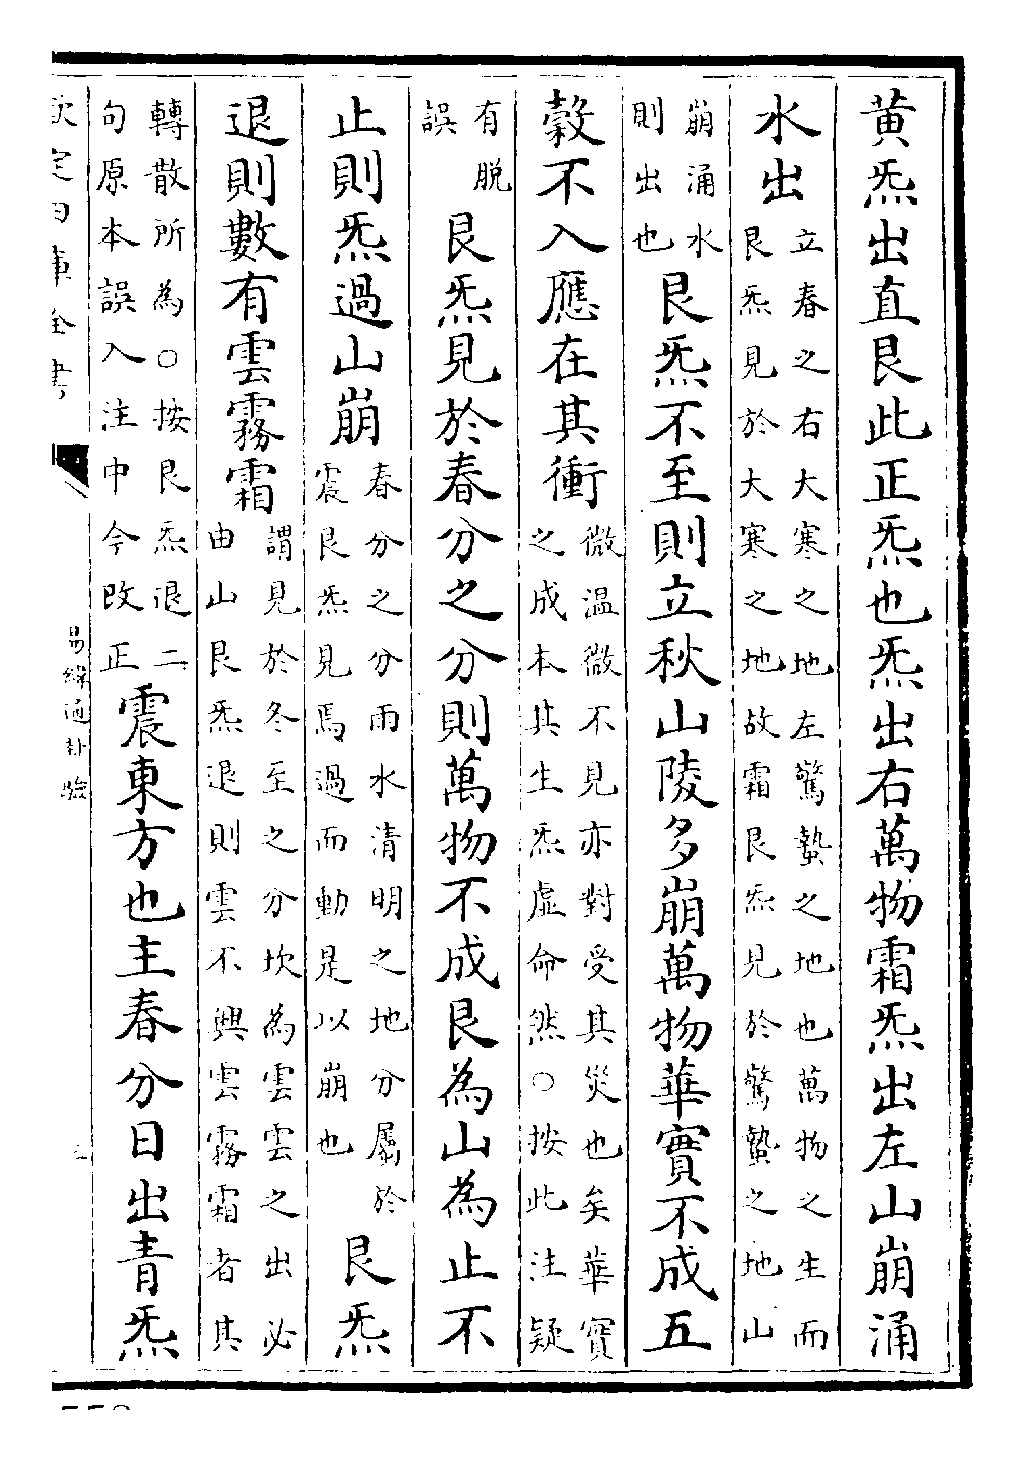 黄炁出直艮此正炁也炁出右萬物霜炁出左山崩涌
水出立春之右大寒之地左驚蟄之地也萬物之生而艮炁見於大寒之地故霜艮炁見於驚蟄之地山
崩涌水則出也艮炁不至則立秋山陵多崩萬物華實不成五
穀不入應在其衝微温微不見亦對受其災也矣華實之成本其生炁虛命然○按此注疑
有脱誤艮炁見於春分之分則萬物不成艮為山為止不
止則炁過山崩春分之分雨水清明之地分屬於震艮炁見焉過而動是以崩也艮炁
退則數有雲霧霜謂見於冬至之分坎為雲雲之出必由山艮炁退則雲不興雲霧霜者其
轉散所為○按艮炁退二句原本誤入注中今改正震東方也主春分日出青炁
易緯通卦驗